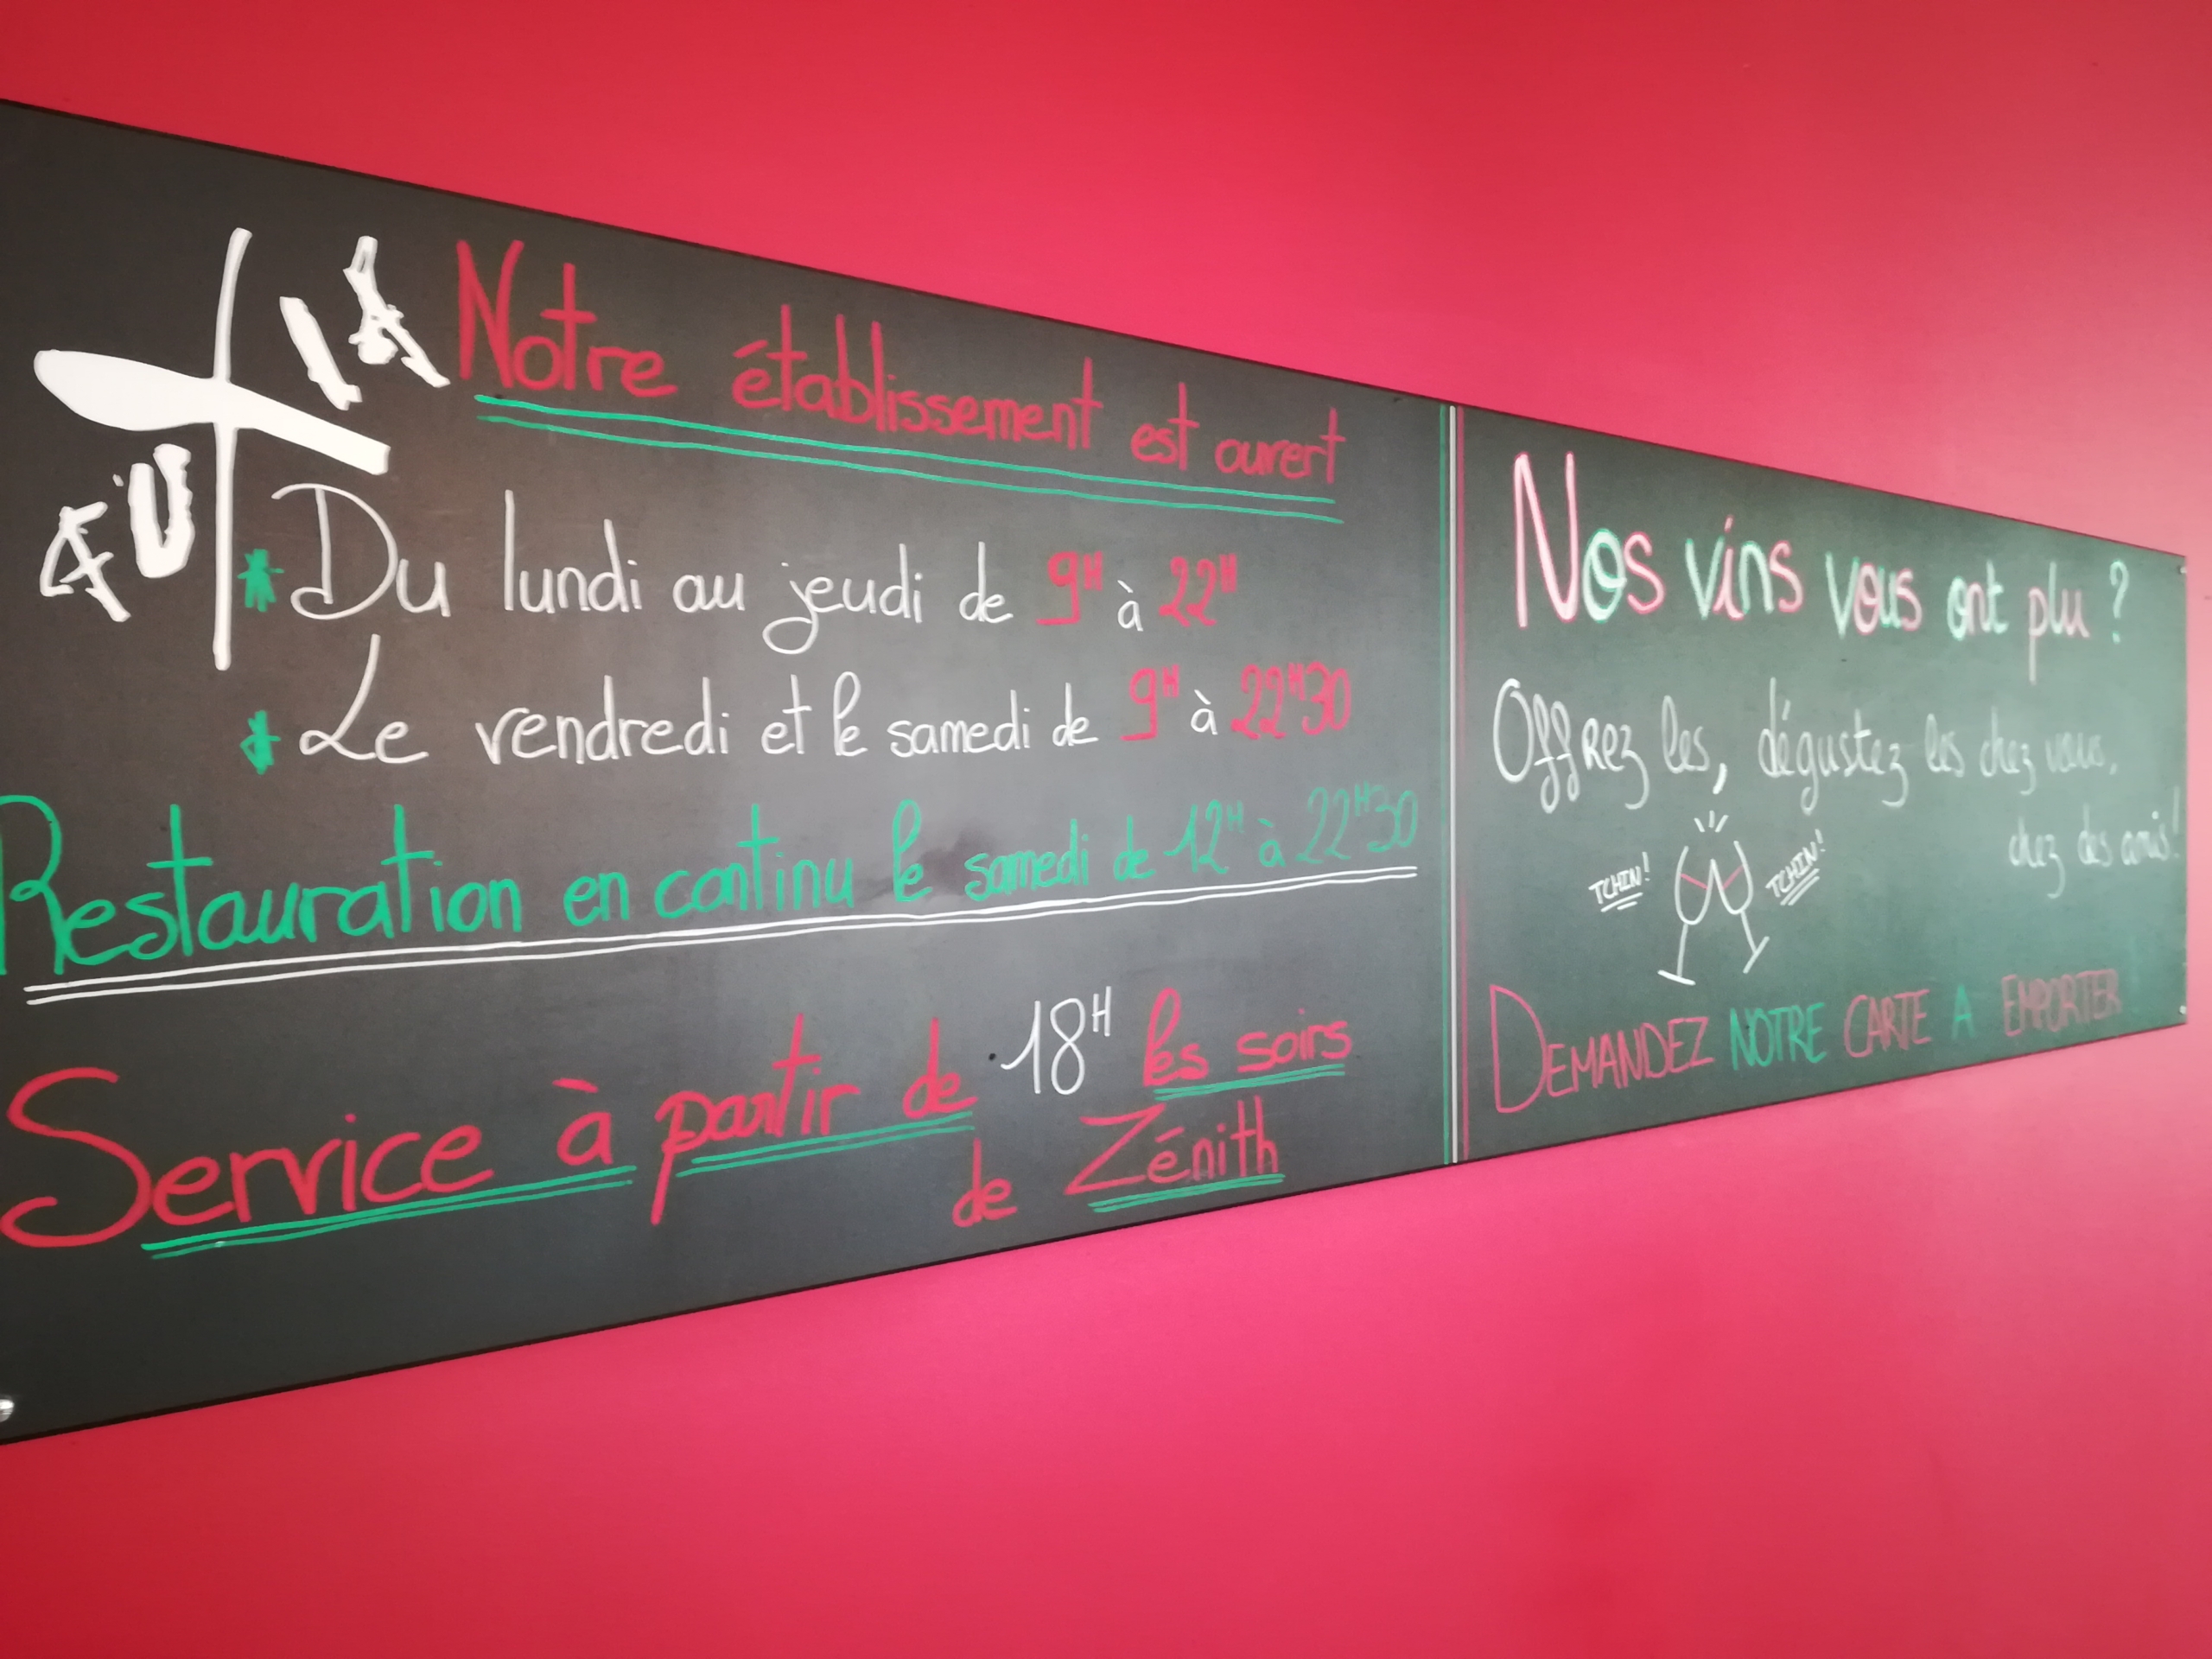 Notre établissement est ouvert
* Du lundi au jeudi de 9H à 22H
* Le vendredi et le samedi de 9H à 22H30
Restauration en continu le samedi de 12H à 22H30
Service à partir de 18H les soirs
de Zénith
Nos vins vous ont plu ?
Offrez les, dégustez les chez vous,
chez des amis!
TCHIN!
TCHIN!
DEMANDEZ NOTRE CARTE A EMPORTER